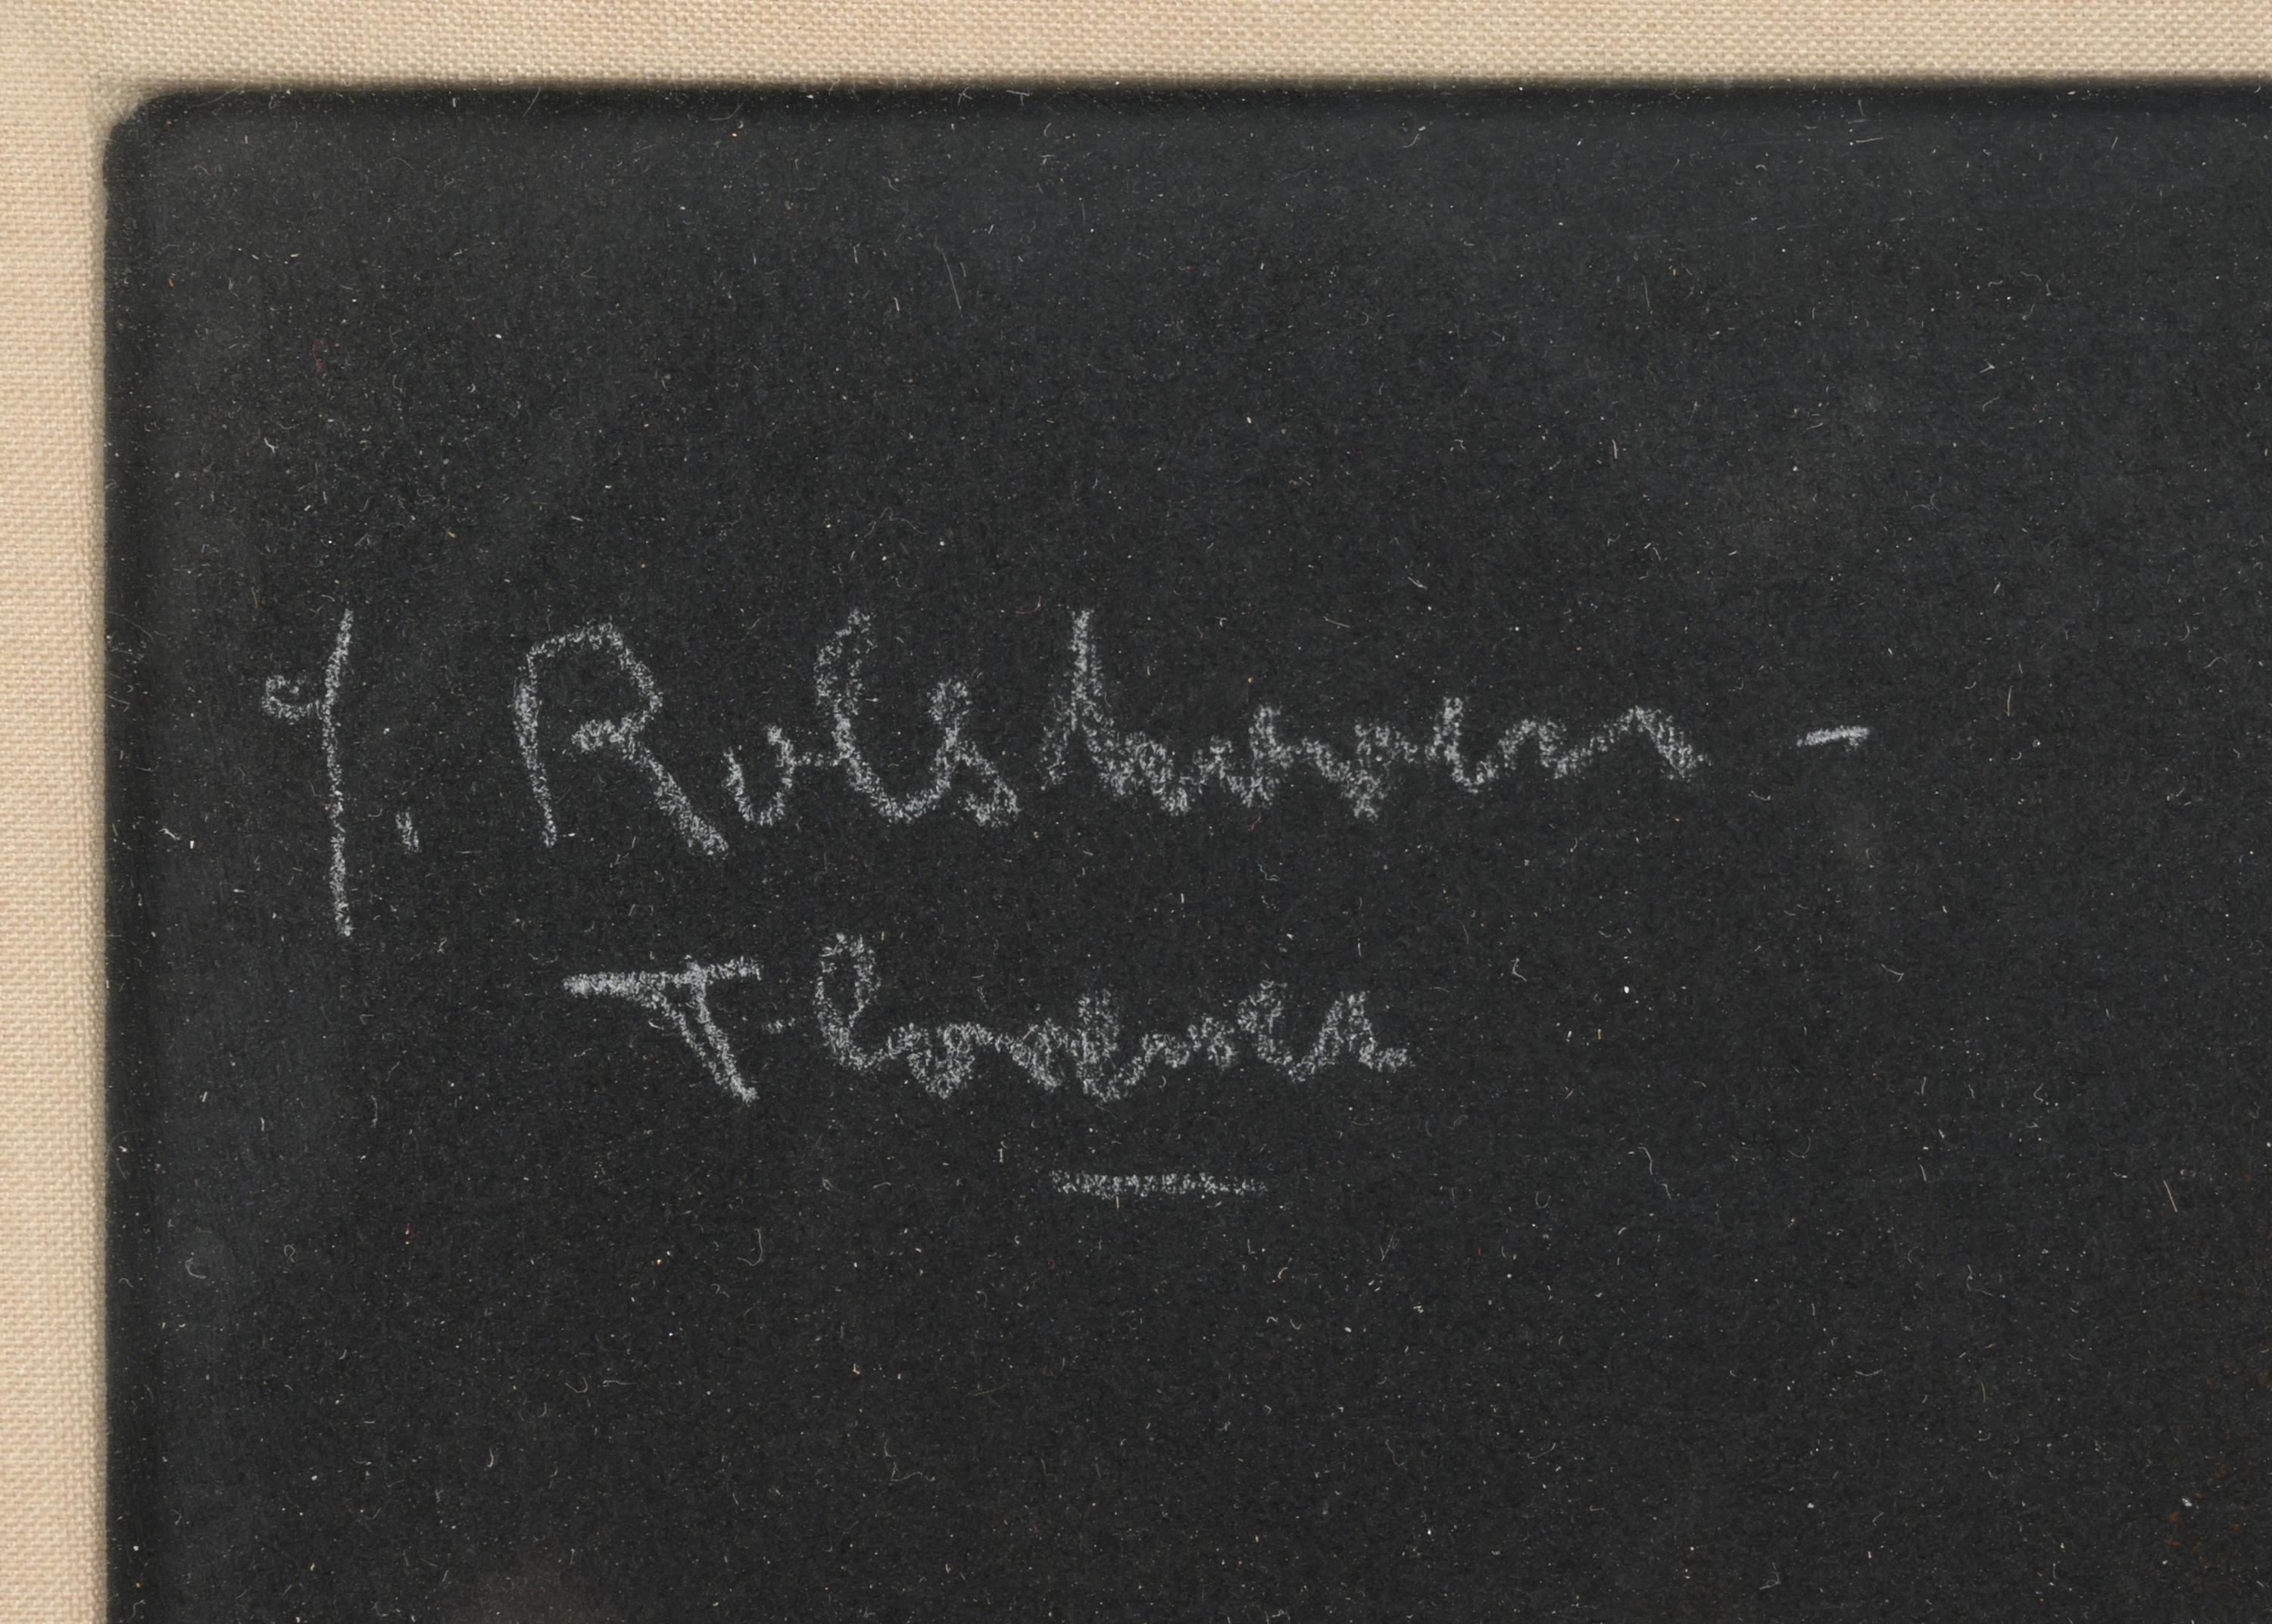 J. Rolshoven -
Florence